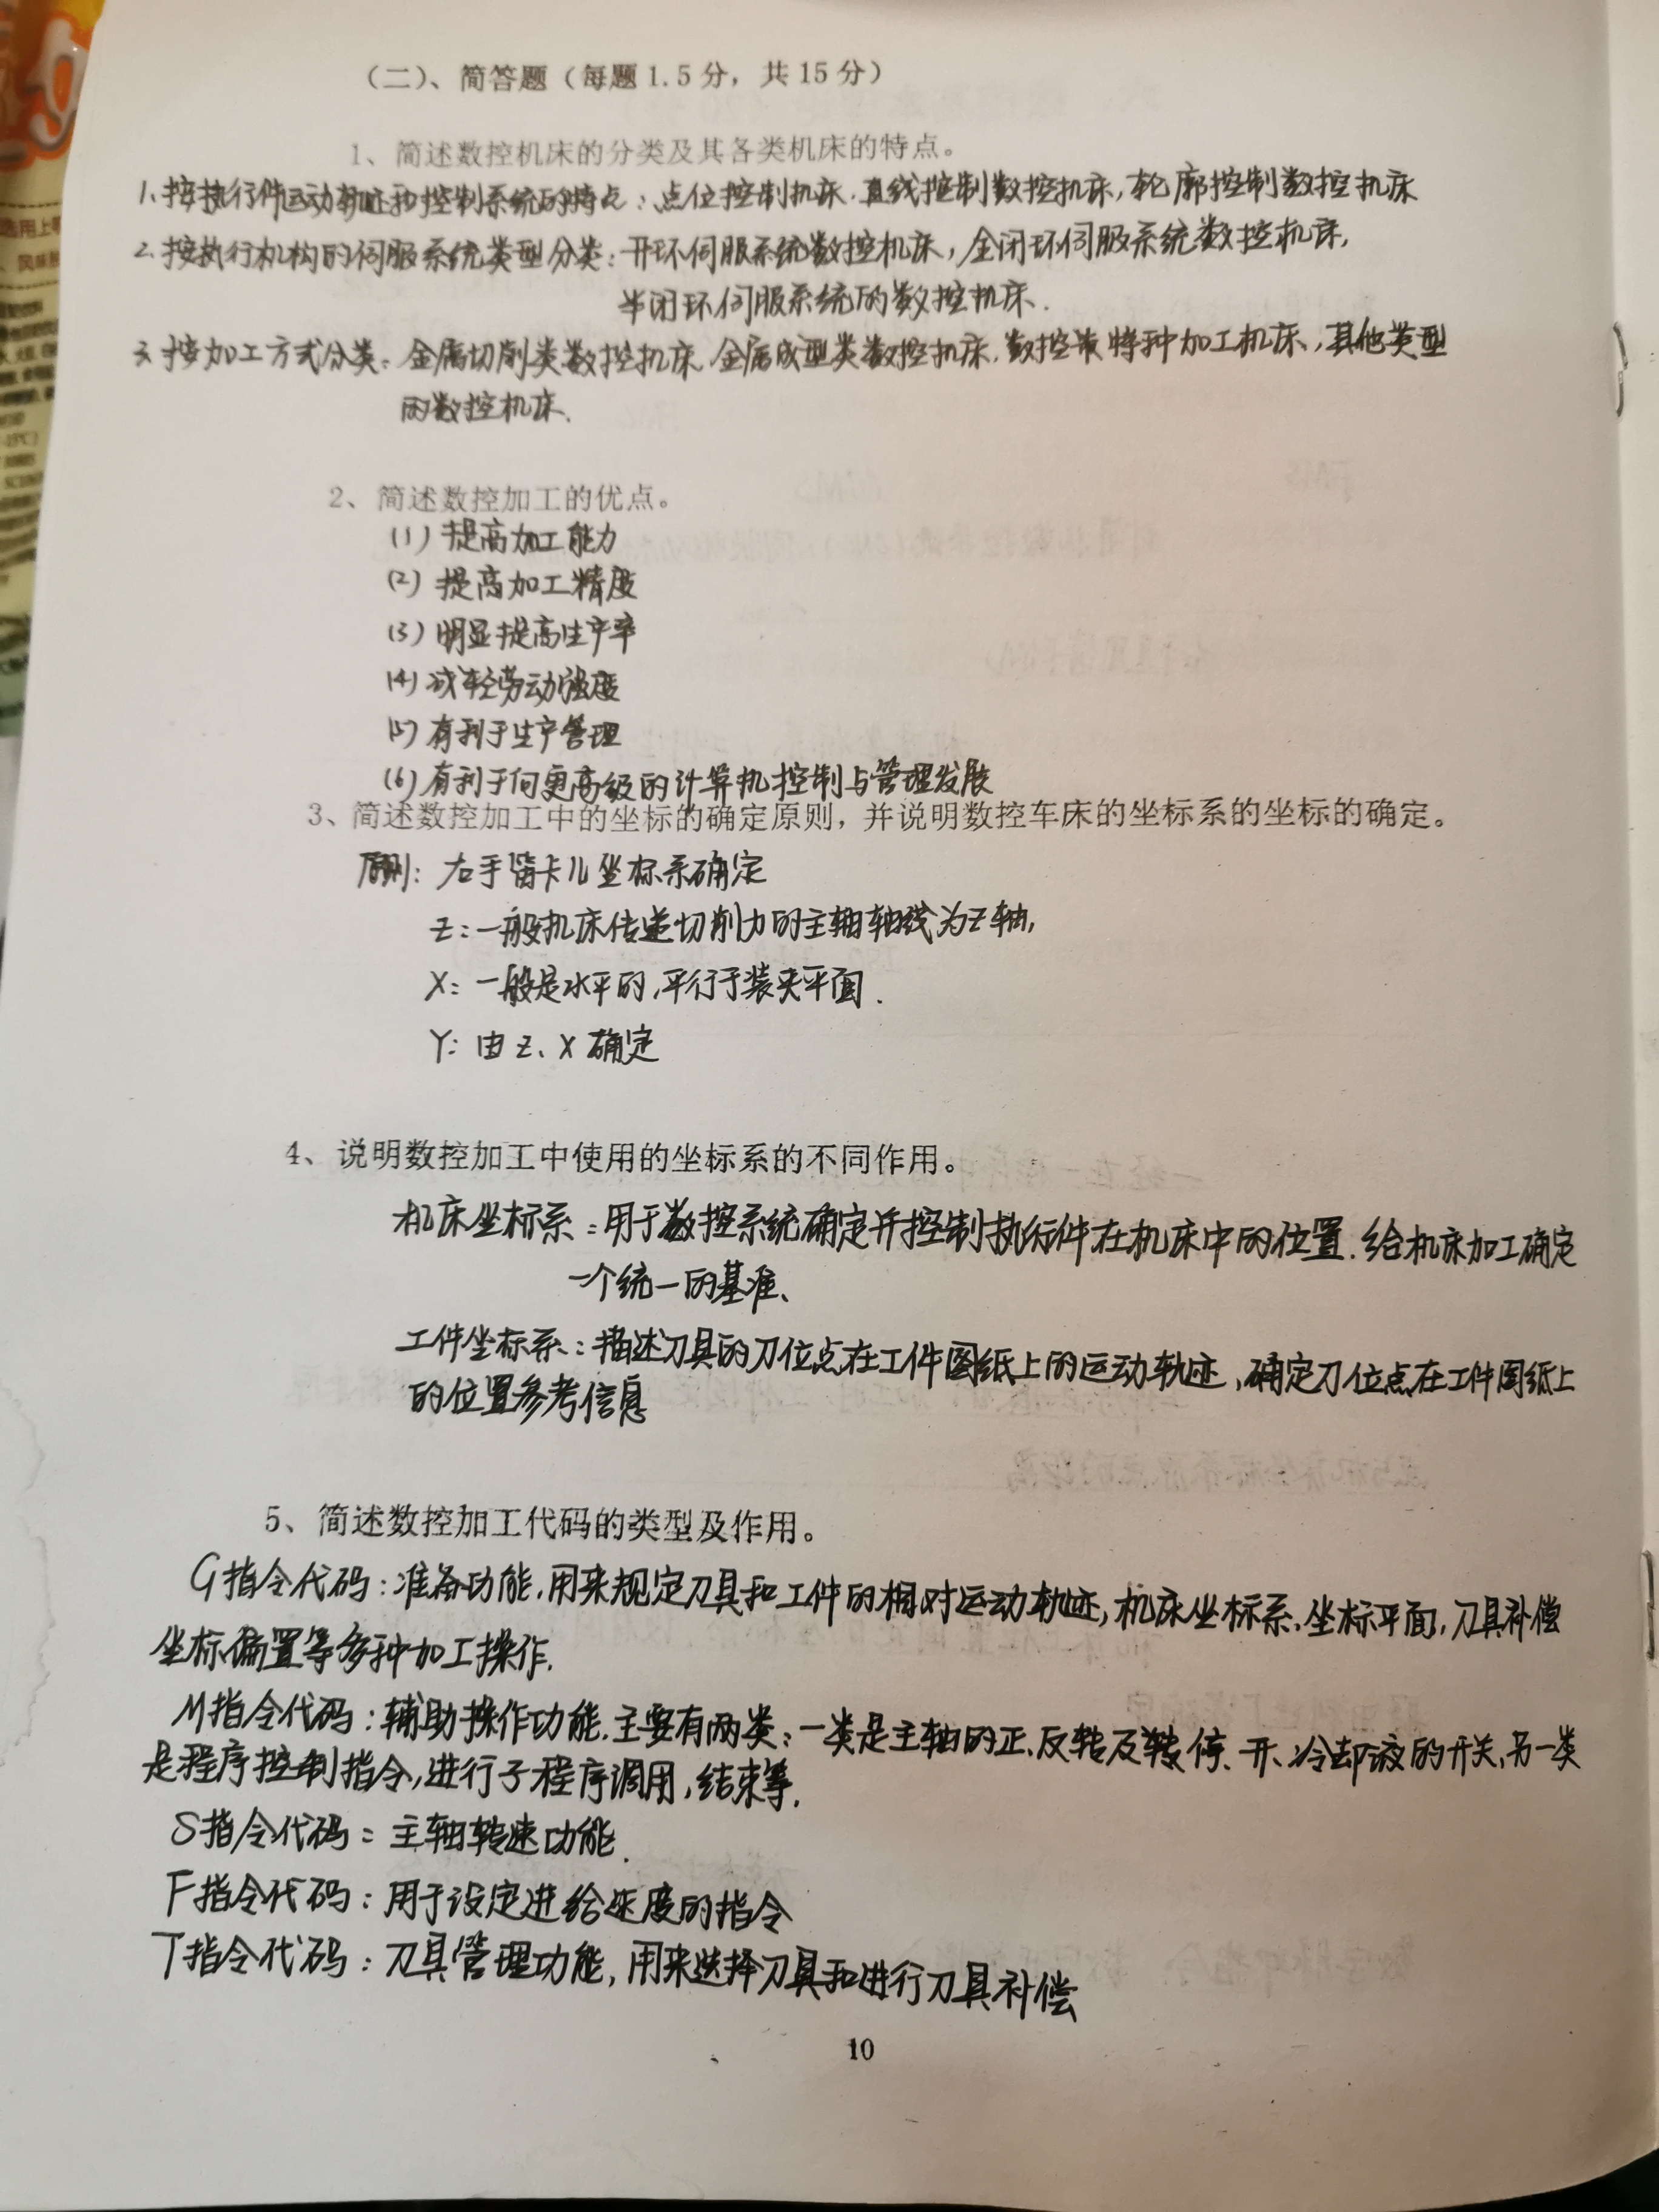 （二）、简答题（每题1.5分，共15分）
1、简述数控机床的分类及其各类机床的特点。
1、按执行件运动轨迹和控制系统的特点：点位控制机床、直线控制数控机床，轮廓控制数控机床
2、按执行机构的伺服系统类型分类：开环伺服系统数控机床，全闭环伺服系统数控机床，
半闭环伺服系统的数控机床．
3、按加工方式分类：金属切削类数控机床、金属成型类数控机床、数控特种加工机床，其他类型
的数控机床．
2、简述数控加工的优点。
(1) 提高加工能力
(2) 提高加工精度
(3) 明显提高生产率
(4) 减轻劳动强度
(5) 有利于生产管理
(6) 有利于向更高级的计算机控制与管理发展
3、简述数控加工中的坐标的确定原则，并说明数控车床的坐标系的坐标的确定。
原则：右手笛卡儿坐标系确定
Z：一般机床传递切削力的主轴轴线为Z轴，
X：一般是水平的，平行于装夹平面．
Y：由Z、X确定
4、说明数控加工中使用的坐标系的不同作用。
机床坐标系：用于数控系统确定并控制执行件在机床中的位置．给机床加工确定
一个统一的基准、
工件坐标系：描述刀具的刀位点在工件图纸上的运动轨迹、确定刀位点在工件图纸上
的位置参考信息
5、简述数控加工代码的类型及作用。
G指令代码：准备功能，用来规定刀具和工件的相对运动轨迹，机床坐标系、坐标平面，刀具补偿
坐标偏置等多种加工操作．
M指令代码：辅助操作功能．主要有两类：一类是主轴的正、反转及转停、开、冷却液的开关，另一类
是程序控制指令，进行子程序调用，结束等．
S指令代码：主轴转速功能．
F指令代码：用于设定进给速度的指令
T指令代码：刀具管理功能，用来选择刀具和进行刀具补偿
10